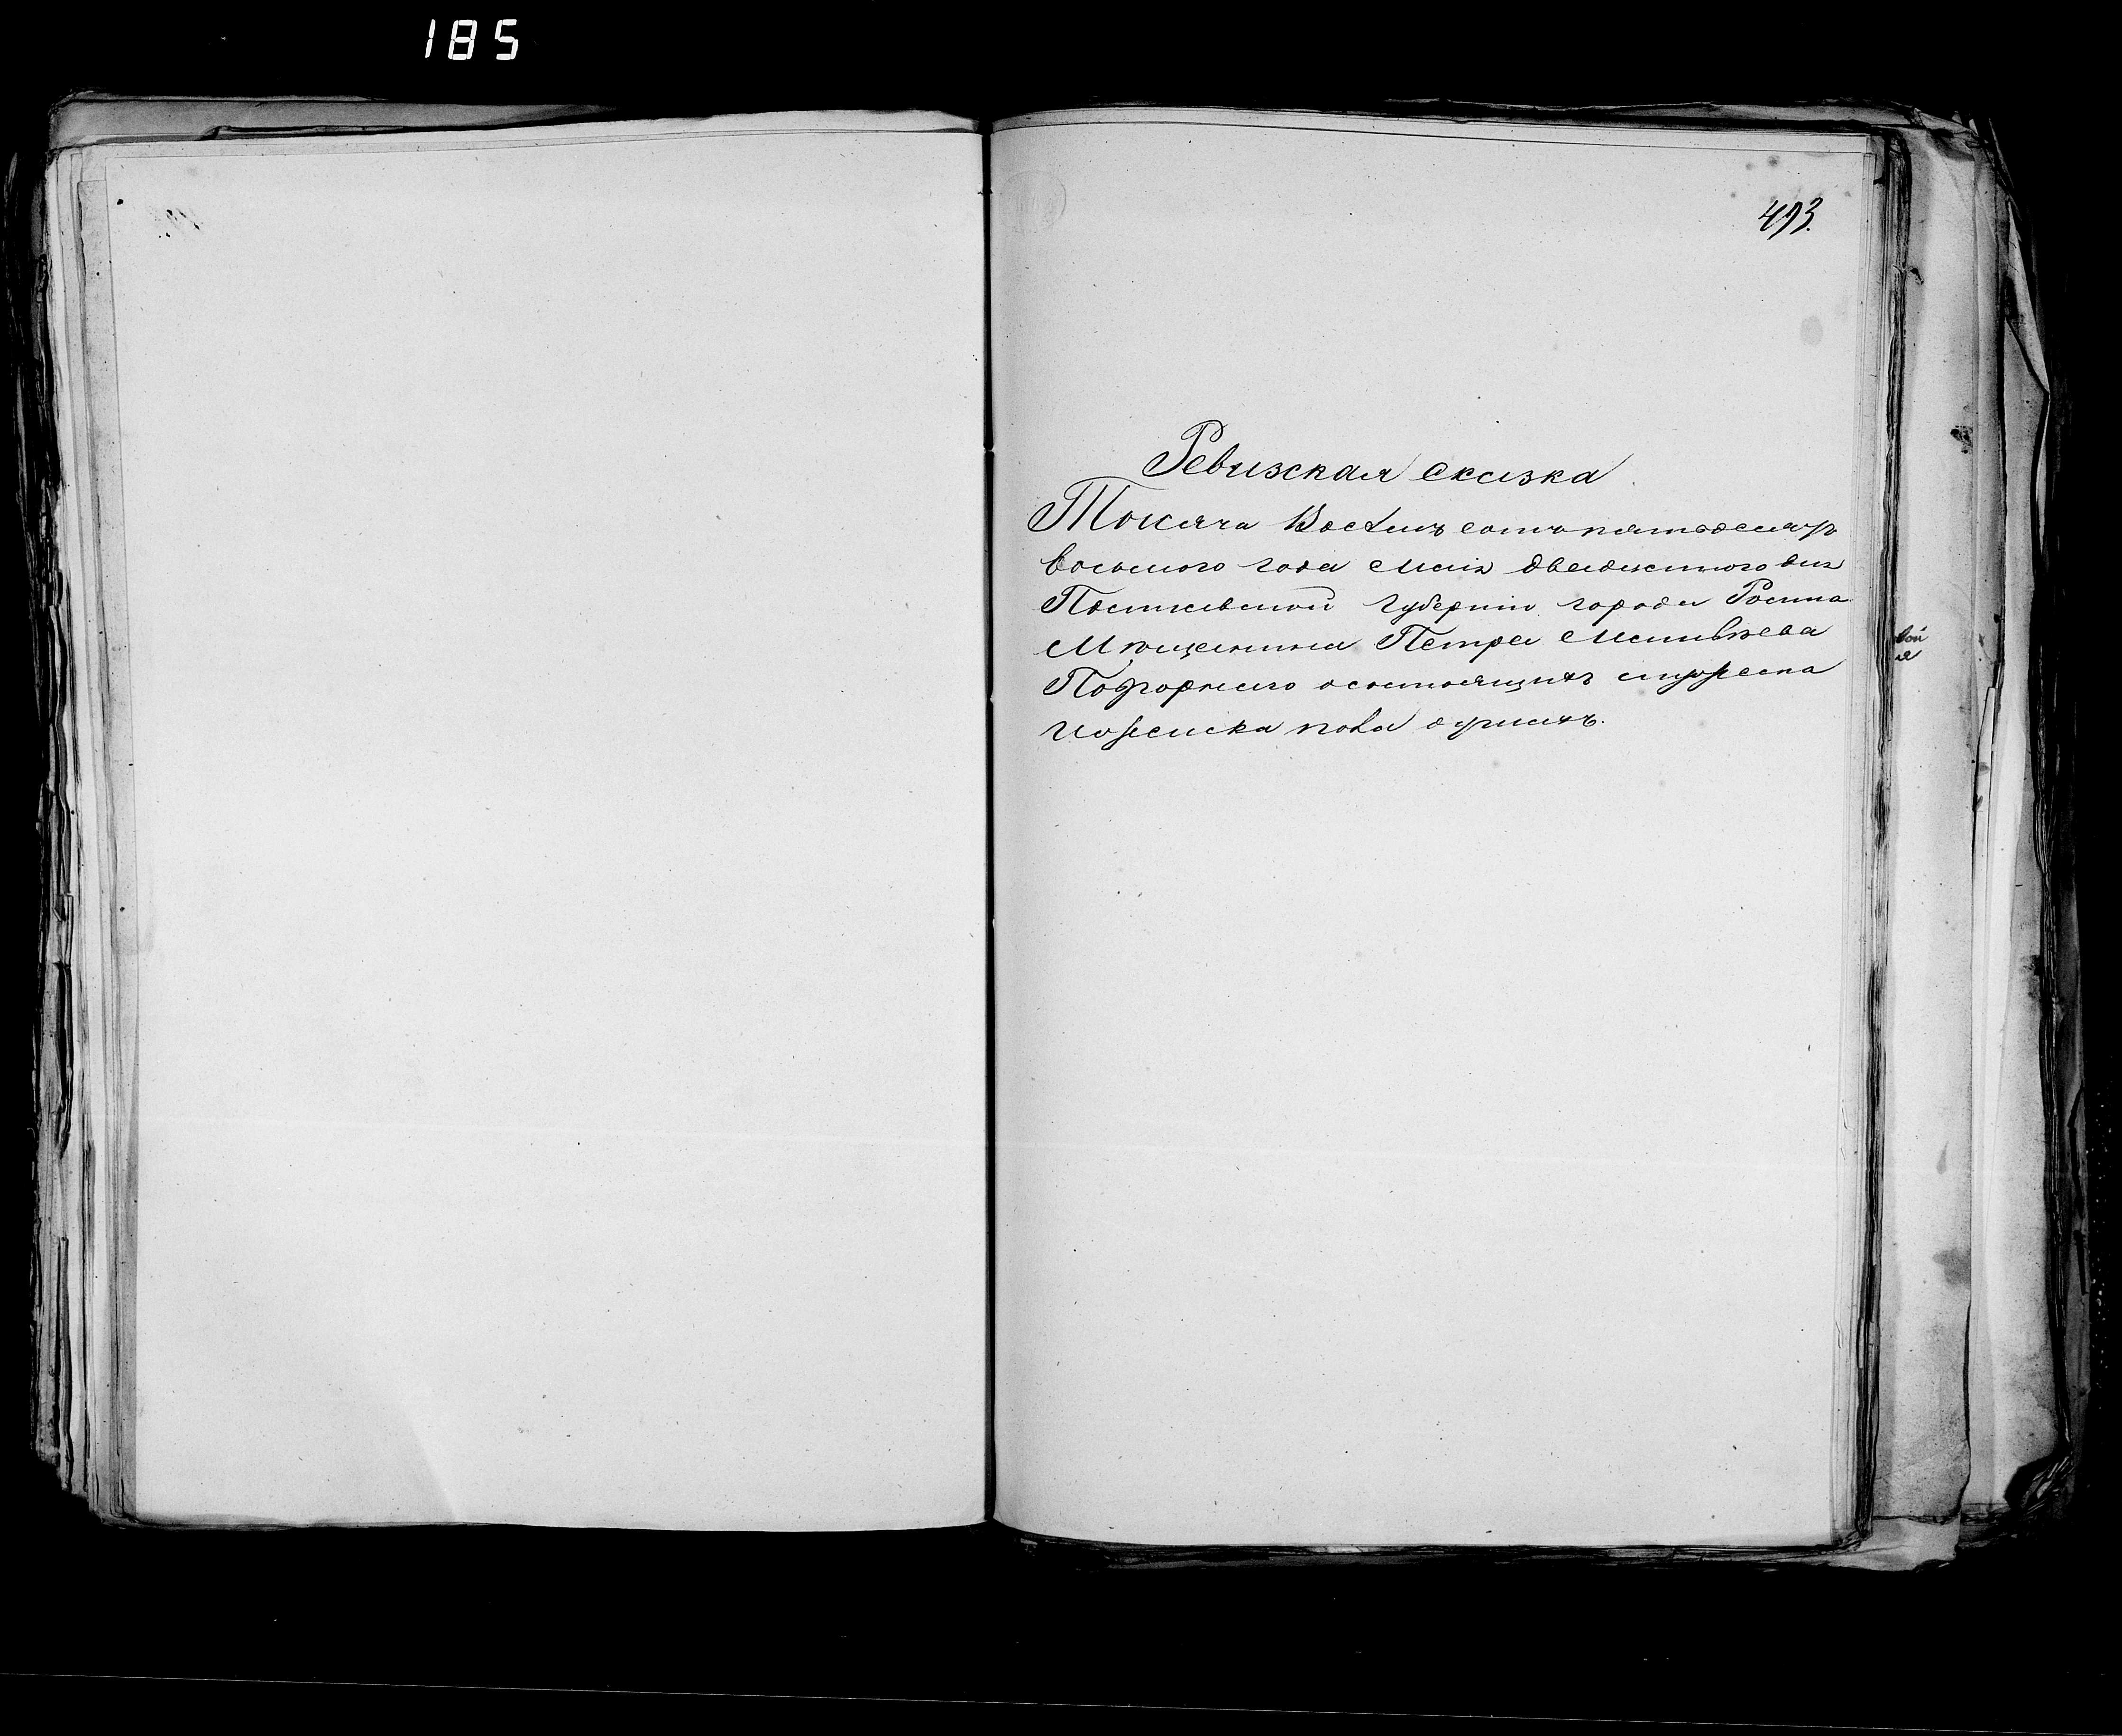 185
493.
Ревизская сказка
Тысяча Восемь сотъ пятьдесятъ
восьмого года мая двадцатого дня
Полтавской губерніи города Ромна
Мѣщанина Петра Матвѣева
Подгорнаго о состоящихъ мужеска
и женска пола душахъ.
вой